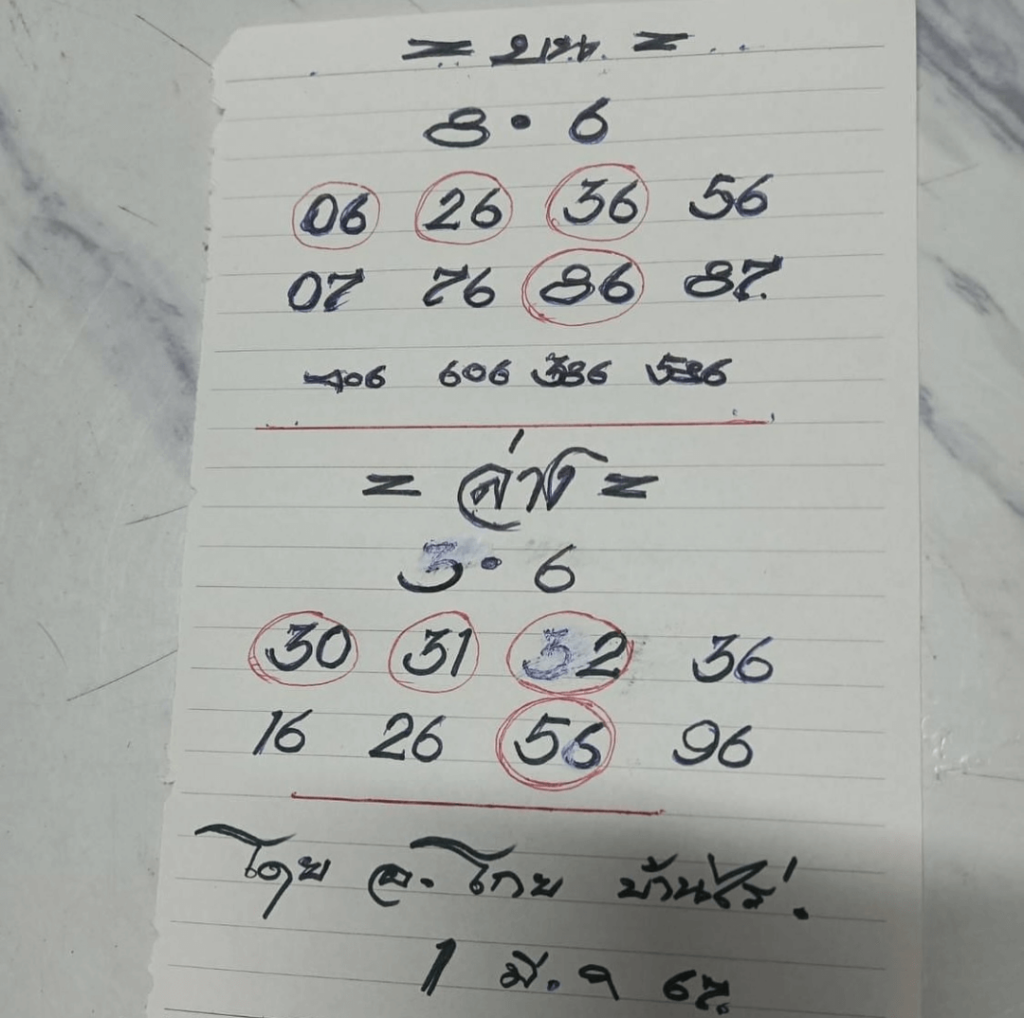 = บน =
8 • 6
06 26 36 56
07 76 86 87.
406 606 386 586
= ล่าง =
3 • 6
30 31 32 36
16 26 56 96
โดย อ. โกย บ้านไร่.
1 มี. ค 67.